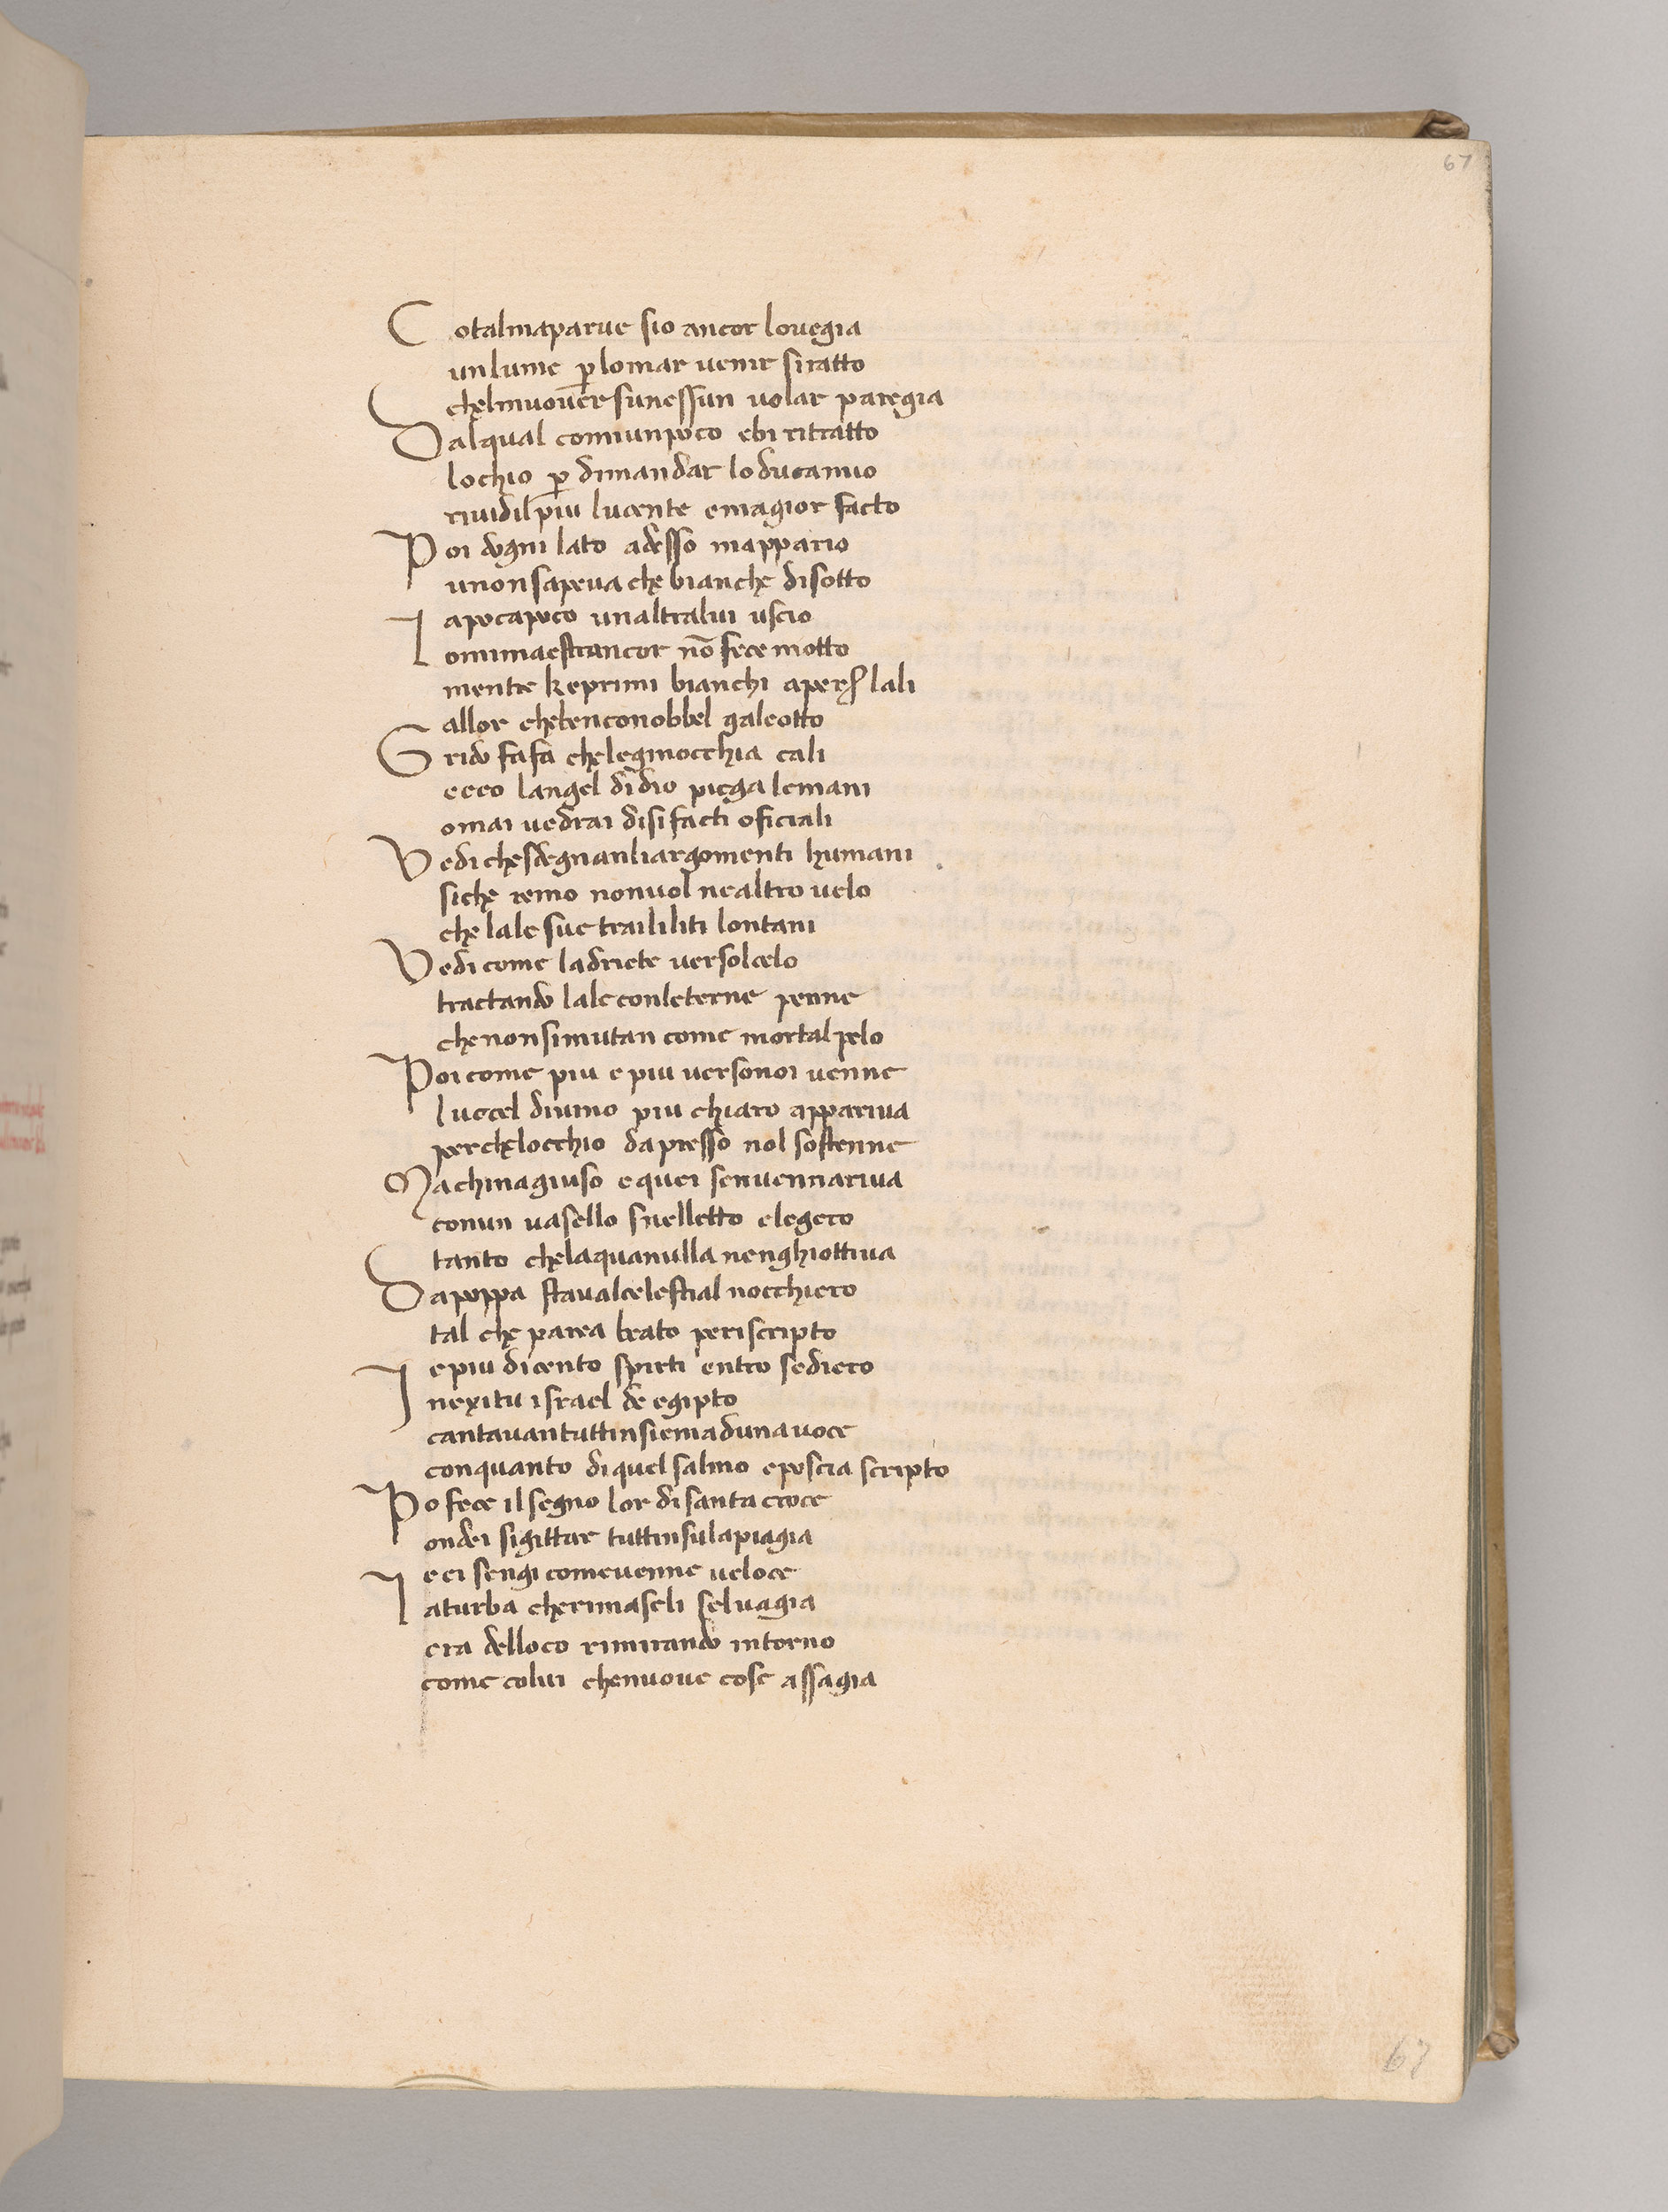 67
Cotalmaparve sio ancor lovegia
un lume p̲ lomar venir siratto
chelmuover sunessun volar paregia
Dalqual comunpoco ebi ritratto
lochio p̲ dimandar lo ducamio
rividilpiu lucente emagior facto
Poi dogni lato adesso mappario
unonsapeva che bianche disotto
apocapoco unaltralui uscio
Iomimaestrancor nō fece motto
mentre keprimi bianchi apers lali
allor chebenconobbel galeotto
Grido fafa cheleginocchia cali
ecco langel didio piega lemani
omai vedrai disifacti oficiali
Vedichesdegnanliargomenti humani
siche remo nonvol nealtro velo
che lale sue traililiti lontani
Vedicome ladriete versolcelo
tractando laleconleterne penne
chenonsimutan come mortalpelo
Poicome piu epiu versonoi venne
luccel divino piu chiaro appariva
perchelocchio dapresso nol sostenne
Machinagiuso equei senvennariva
conun vasello snelletto elegero
tanto chelaquanulla nenghiottiva
Dapoppa stavalcelestial nocchiero
tal che parea beato periscripto
epiu dicento spirti entro sediero
Inexitu israel de egipto
cantavantuttinsiemaduna voce
conquanto diquelsalmo eposcia scripto
Po fece ilsegno lor disanta croce
ondei sigittar tuttinsulapiagia
eei sengi comevenne veloce
Iaturba cherimaseli selvagia
era delloco rimirando intorno
come colui chenuove cose assagia
67